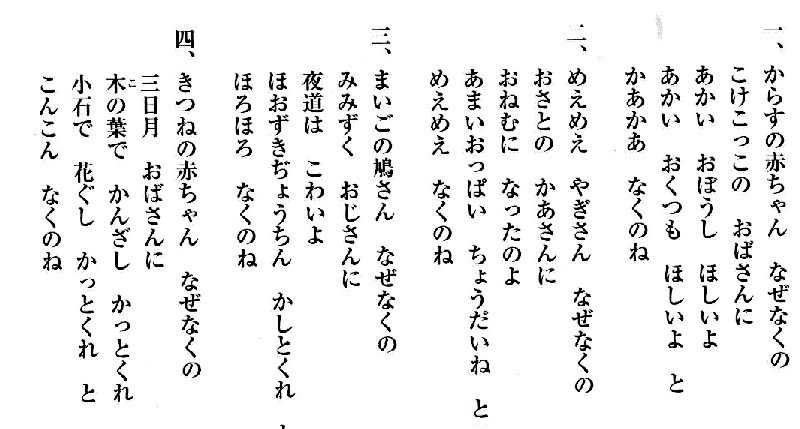 一、からすの赤ちゃん なぜなくの
こけこっこの おばさんに
あかい おぼうし ほしいよ
あかい おくつも ほしいよ と
かあかあ なくのね
二、めえめえ やぎさん なぜなくの
おさとの かあさんに
おねむに なったのよ
あまいおっぱい ちょうだいね と
めえめえ なくのね
三、まいごの鳩さん なぜなくの
みみずく おじさんに
夜道は こわいよ
ほおずきぢょうちん かしとくれ と
ほろほろ なくのね
四、きつねの赤ちゃん なぜなくの
三日月 おばさんに
木の葉で かんざし かっとくれ
小石で 花ぐし かっとくれ と
こんこん なくのね